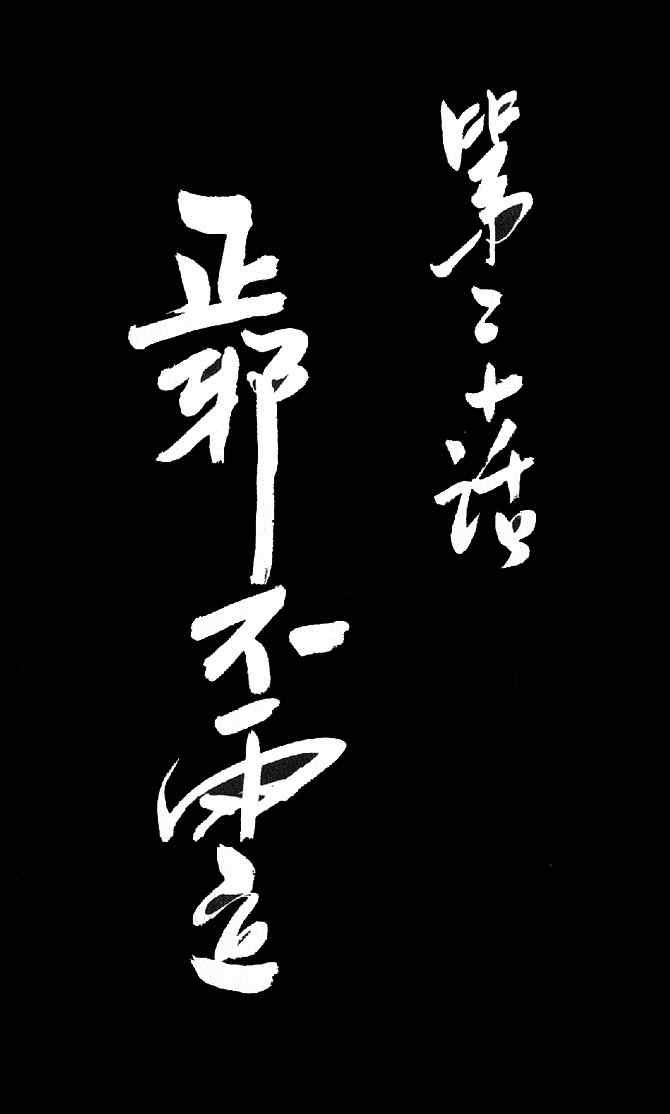 第二十話
正邪不両立